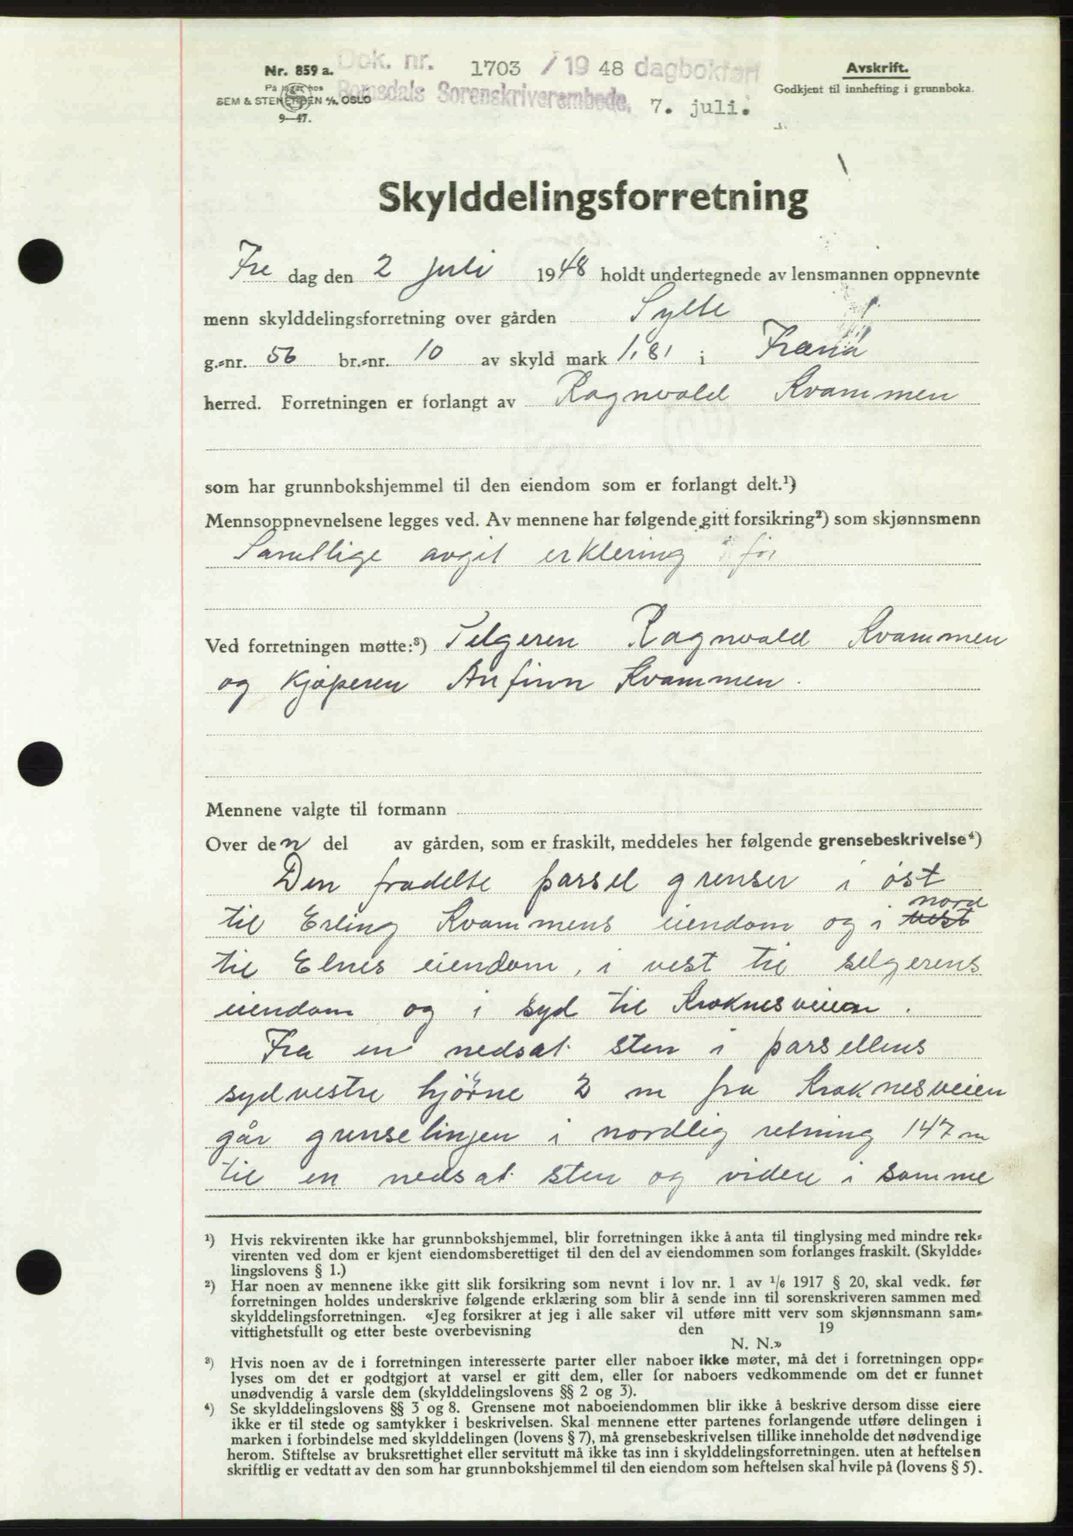 Nr. 859 a.
På lager hos
SEM & STENERSEN A/S, OSLO
9—47.
Dok. nr. 1703 / 19 48 dagbokført
Romsdals Sorenskriverembede, 7. juli.
Avskrift.
Godkjent til innhefting i grunnboka.
Skylddelingsforretning
Fre dag den 2 juli 1948 holdt undertegnede av lensmannen oppnevnte
menn skylddelingsforretning over gården Sylte
g.-nr. 56 br.-nr. 10 av skyld mark 1,81 i Fræna
herred. Forretningen er forlangt av Ragnvald Kvammen
som har grunnbokshjemmel til den eiendom som er forlangt delt.¹)
Mennsoppnevnelsene legges ved. Av mennene har følgende gitt forsikring²) som skjønnsmenn
Samtlige avgit erklering før
Ved forretningen møtte:³) Selgeren Ragnvald Kvammen
og kjøperen Anfinn Kvammen.
Mennene valgte til formann
Over den del av gården, som er fraskilt, meddeles her følgende grensebeskrivelse⁴)
Den fradelte parsel grenser i øst
til Erling Kvammens eiendom og i vest nord
til Elnes eiendom, i vest til selgerens
eiendom og i syd til Kroknesveien.
Fra en nedsat sten i parsellens
sydvestre hjörne 2 m fra Kroknesveien
går grenselinjen i nordlig retning 147 m
til en nedsat sten og videre i samme
¹) Hvis rekvirenten ikke har grunnbokshjemmel, blir forretningen ikke å anta til tinglysing med mindre rek-
virenten ved dom er kjent eiendomsberettiget til den del av eiendommen som forlanges fraskilt. (Skyldde-
lingslovens § 1.)
²) Har noen av mennene ikke gitt slik forsikring som nevnt i lov nr. 1 av ¹/₆ 1917 § 20, skal vedk. før
forretningen holdes underskrive følgende erklæring som blir å sende inn til sorenskriveren sammen med
skylddelingsforretningen. «Jeg forsikrer at jeg i alle saker vil utføre mitt verv som skjønnsmann sam-
vittighetsfullt og etter beste overbevisning den 19
N. N.»
³) Hvis noen av de i forretningen interesserte parter eller naboer ikke møter, må det i forretningen opp-
lyses om det er godtgjort at varsel er gitt dem, eller for naboers vedkommende om det er funnet
unødvendig å varsle dem (skylddelingslovens §§ 2 og 3).
⁴) Se skylddelingslovens §§ 3 og 8. Grensene mot naboeiendommen blir ikke å beskrive dersom disse eiere
ikke er til stede og samtykker i beskrivelsen. Skal mennene etter partenes forlangende utføre delingen i
marken i forbindelse med skylddelingen (lovens § 7), må grensebeskrivelsen tillike inneholde det nødvendige
herom. Stiftelse av bruksrettighet eller servitutt må ikke tas inn i skylddelingsforretningen, uten at heftelsen
skriftlig er vedtatt av den som har grunnbokshjemmel til den eiendom som heftelsen skal hvile på (lovens § 5).